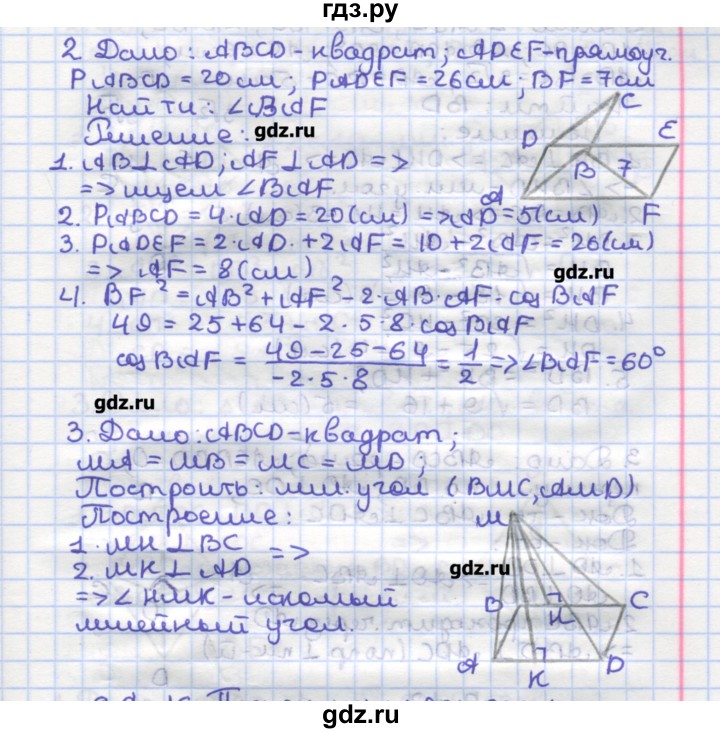 гдз.ру
2 Дано: ABCD - квадрат; ADEF - прямоуг.
PABCD = 20 см; PADEF = 26 см; BF = 7 см
Найти: ∠BAF
Решение:
gdz.ru
1. AB ⊥ AD; AF ⊥ AD =>
=> ищем ∠BAF
C
D
E
B
7
A
F
2. PABCD = 4·AD = 20 (см) => AD = 5 (см)
3. PADEF = 2·AD· + 2AF = 10 + 2AF = 26 (см)
=> AF = 8 (см)
gdz.ru
4. BF² = AB² + AF² - 2·AB·AF·cos BAF
49 = 25 + 64 - 2·5·8·cos BAF
cos BAF = (49 - 25 - 64)/(-2·5·8) = 1/2 => ∠BAF = 60°
gdz.ru
3. Дано: ABCD - квадрат;
MA = MB = MC = MD;
Построить: лин. угол (BMC, AMD)
Построение:
1. MH ⊥ BC
=>
2. MK ⊥ AD
=> ∠HMK - искомый
линейный угол.
M
gdz.ru
B
H
C
A
K
D
gdz.ru